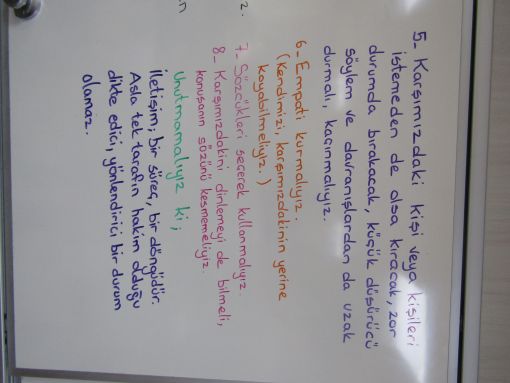 5- Karşımızdaki kişi veya kişileri
istemeden de olsa kıracak, zor
durumda bırakacak, küçük düşürücü
söylem ve davranışlardan da uzak
durmalı, kaçınmalıyız.
6- Empati kurmalıyız.
(Kendimizi, karşımızdakinin yerine
koyabilmeliyiz.)
7- Sözcükleri seçerek kullanmalıyız.
8- Karşımızdakini dinlemeyi de bilmeli,
konuşanın sözünü kesmemeliyiz.
Unutmamalıyız ki;
İletişim; bir süreç, bir döngüdür.
Asla tek tarafın hakim olduğu
dikte edici, yönlendirici bir durum
olamaz.